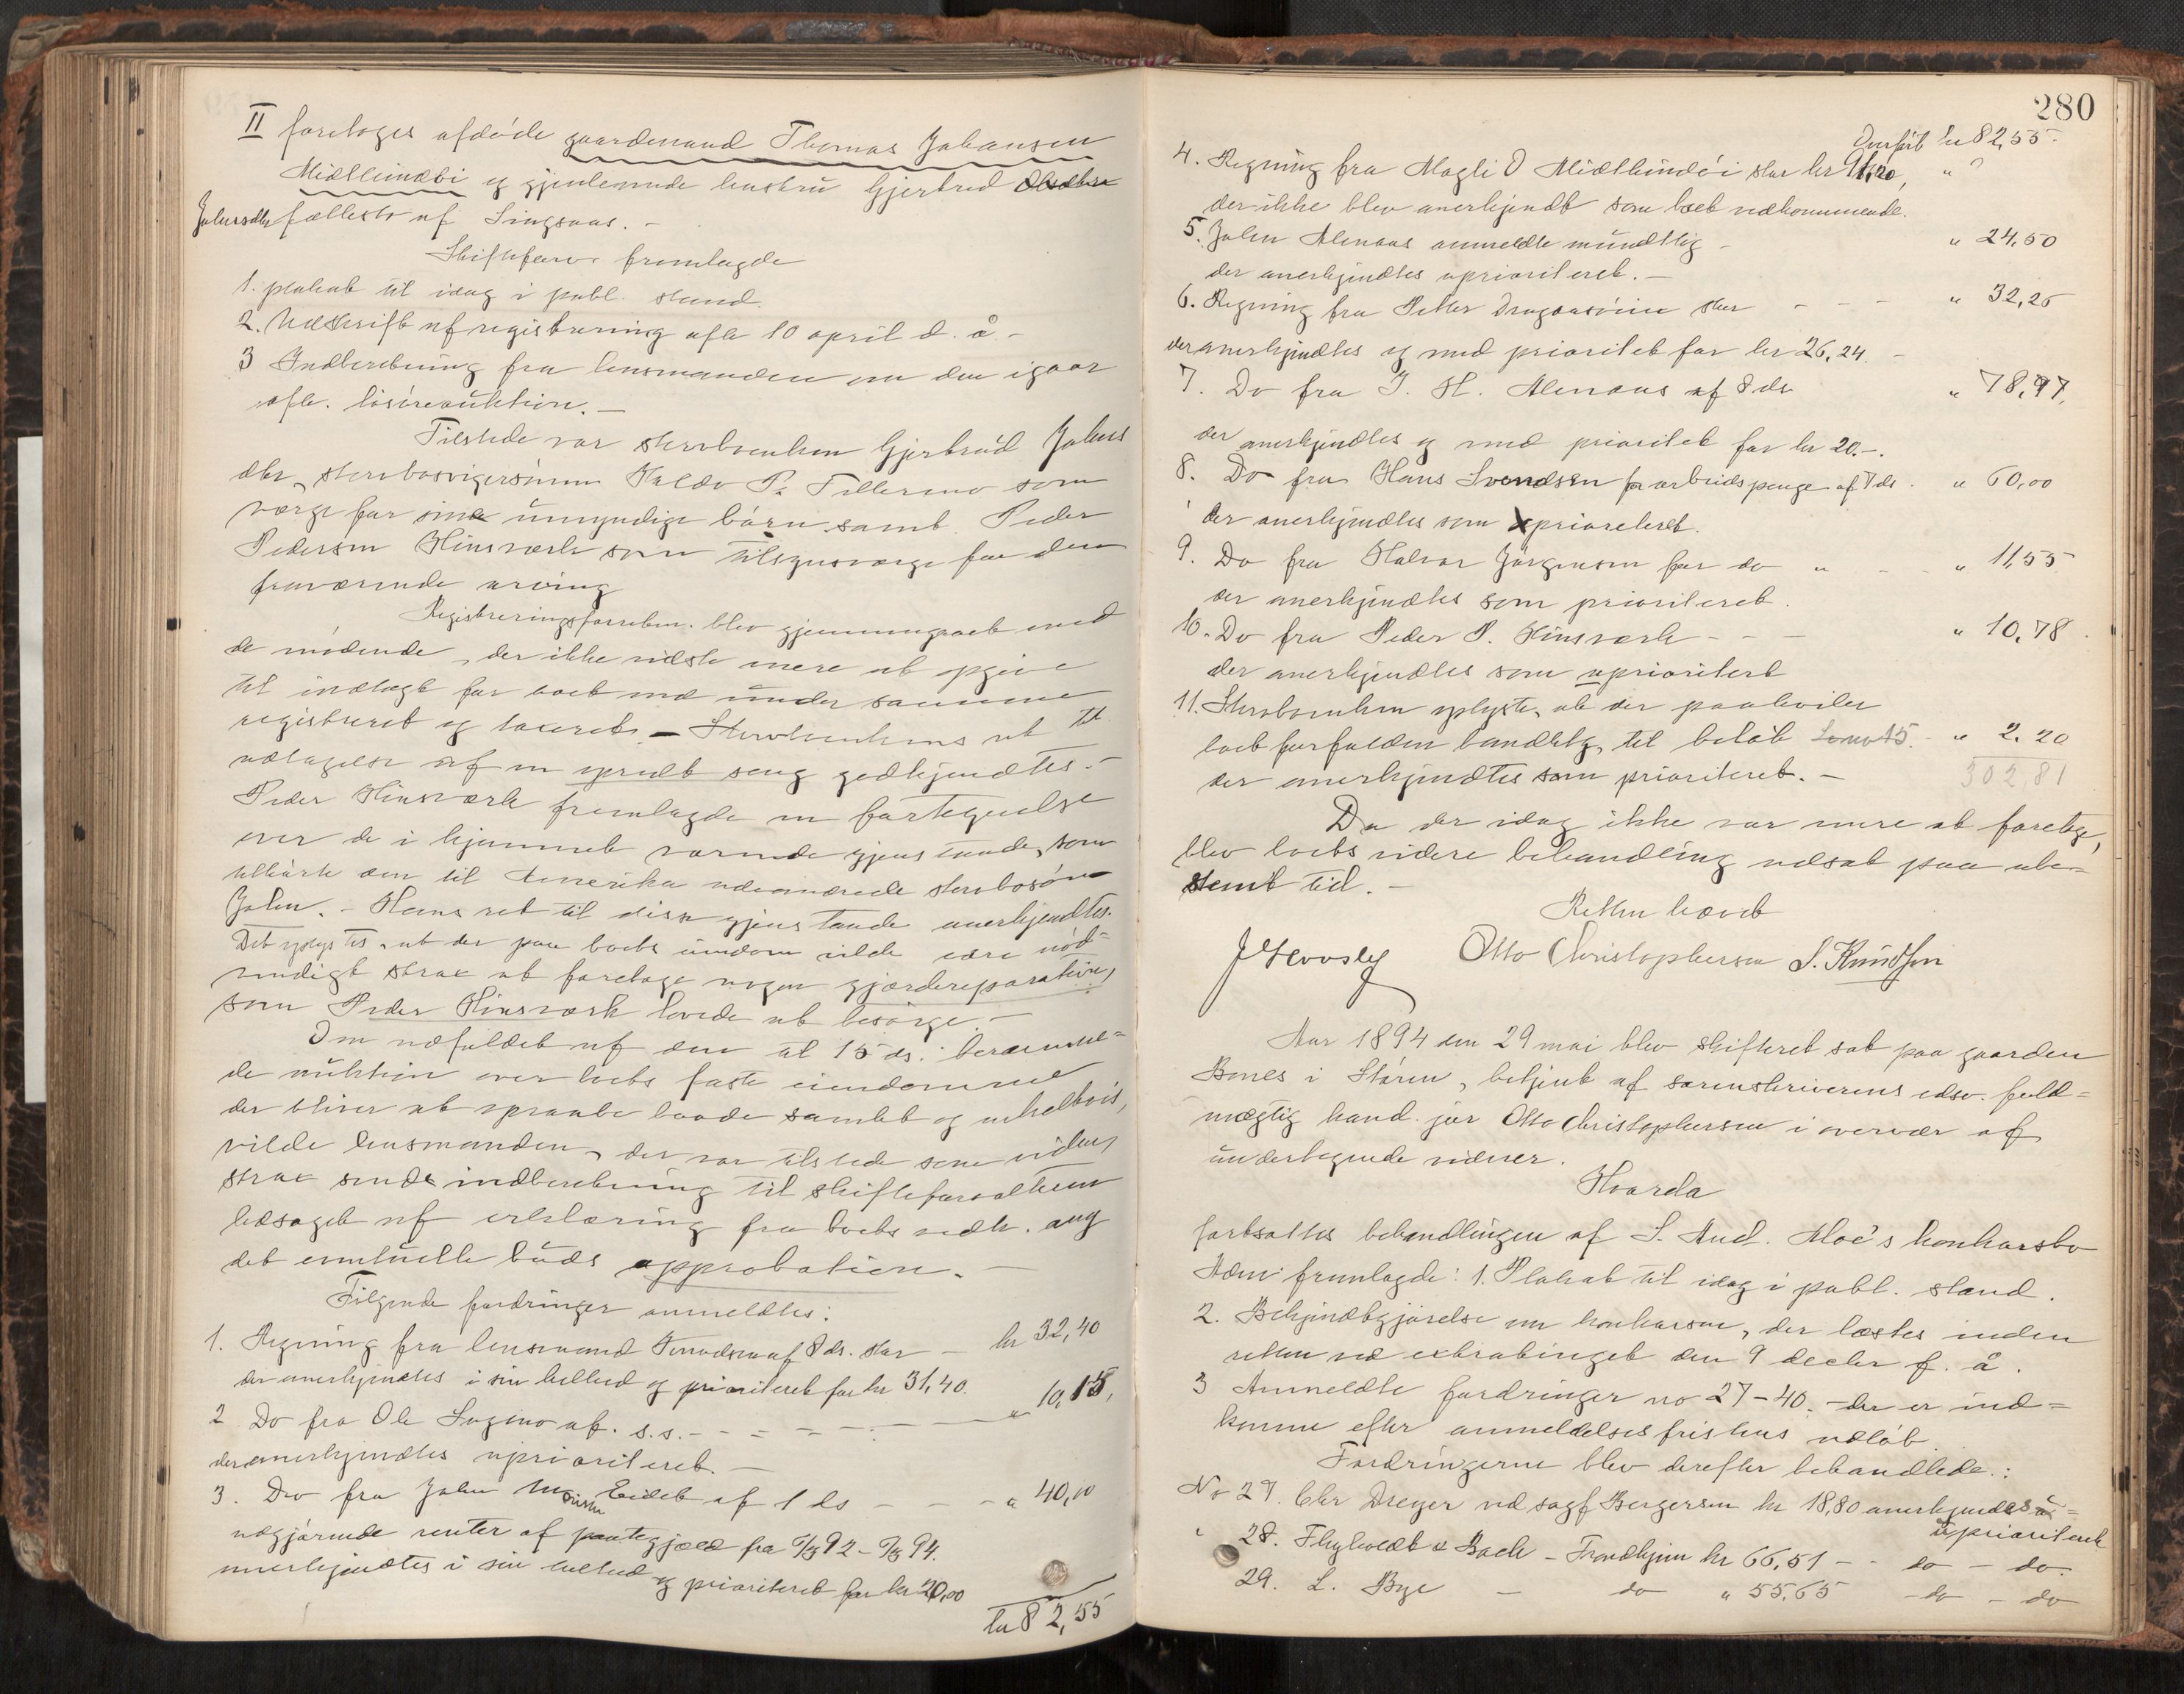 II foretoges afdøde gaardmand Thomas Johansen
og gjenlevende hustru Gjertrud
Johnsdtr fællesbo af Singsaas. -
Skifteforv. fremlagde
1. plakat til idag i publ. stand.
2. Udskrift af registrering afh. 10 april d. å. -
3 Indberetning fra lensmanden om den igaar
afh. løsøreauktion. -
Tilstede var sterbvenken Gjertrud Johns
dtr, sterbosvigersønn Haldo P. som
værge for sine umyndige børn samt Peder
Pedersen Kinsværk som tilsynsværge for den
fraværende arving
Registreringsforretn. blev gjennemgaaet med
de mødende, der ikke vidste mere at opgive
til indtægt for boet end under samme
registreret og taxeret. - Sterbvenkens ret til
udtagelse af en opredt seng godkjendtes. -
Peder Kinsværk fremlagde en fortegnelse
over de i hjemmet værende gjenstande, som
tilhørte den til Amerika udvandrede sterbosøn
John. - Hans ret til disse gjenstande anerkjendtes.
Det oplystes, at der paa boets eiendom vilde være nød=
vendigt strax at foretage nogen gjærdereparation,
som Peder Kinsværk lovede at besørge. -
Om udfaldet af den til 15 ds. berammel=
de auktion over boets faste eiendomme
der bliver at opraabe baade samlet og enkeltvis,
vilde lensmanden, der var tilstede som vidne,
strax sende indberetning til skifteforvalteren
ledsaget af erklæring fra boets vedk. ang
det eventuelle buds approbation. -
Følgende fordringer anmeldtes:
1. Regning fra lensmand af 8 ds. stor - kr 32,40
der anerkjendtes i sin helhed og prioriteret for kr 31,40.
2 Do fra Ole af. s.s. - - - - - " 10,15,
der anerkjendtes uprioriteret. -
3. Do fra John Eidet af 1 ds - - - " 40,00
udgjørende renter af pantegjæld fra 92 - 94.
anerkjendtes i sin helhed og prioriteret for kr 20,00
kr 82,55
280
Overført kr 82,55.
4. Regning fra Magli O stor kr "
der ikke blev anerkjendt som boet vedkommende.
5. John Alenaas anmeldte mundtlig - " 24,50
der anerkjendtes uprioriteret. -
6. Regning fra Petter stor - - - " 32,26
der anerkjendtes og med prioritet for kr 26,24. -
7. Do fra J. H. Alenaas af 8 ds " 78,97,
der anerkjendtes og med prioritet for kr 20. -.
8. Do fra Hans Svendsen for arbeidspenge af 7 ds. " 60,00
der anerkjendtes som prioriteret.
9. Do fra Halvor Jørgensen for do " - - " 11,55
der anerkjendtes som prioriteret.
10. Do fra Peder P. Kinsværk - - - " 10,78.
der anerkjendtes som uprioriteret
11. Sterbvenken oplyste, at der paahviler
boet forfalden landskyld til beløb " 2.20
der anerkjendtes som prioriteret. - 302 81
Da der idag ikke var mere at foretage,
blev boets videre behandling udsat paa ube=
stemt tid. -
Retten hævet
Otto Christophersen S. Knudsen
Aar 1894 den 29 mai blev skifteret sat paa gaarden
Bones i Støren, betjent af sorenskriverens edsv. fuld=
mægtig kand. jur Otto Christophersen i overvær af
undertegnede vidner.
Hvorda
fortsattes behandlingen af S. And. Moe's konkursbo
Adm: fremlagde: 1. Plakat til idag i publ. stand.
2. Bekjendtgjørelse om konkursen, der læstes inden
retten ved extratinget den 9 decbr f. å.
3 Anmeldte fordringer no 27 - 40. - der er ind=
komne efter anmeldelsesfristens udløb.
Fordringerne blev derefter behandlede:
No 27. Chr Dreyer ved sagf Bergersen kr 18,80 anerkjendes
uprioriteret
" 28. & Bach - Trondhjem kr 66,51 - - do - do.
29. L. Bye - do " 55,65 - do - do